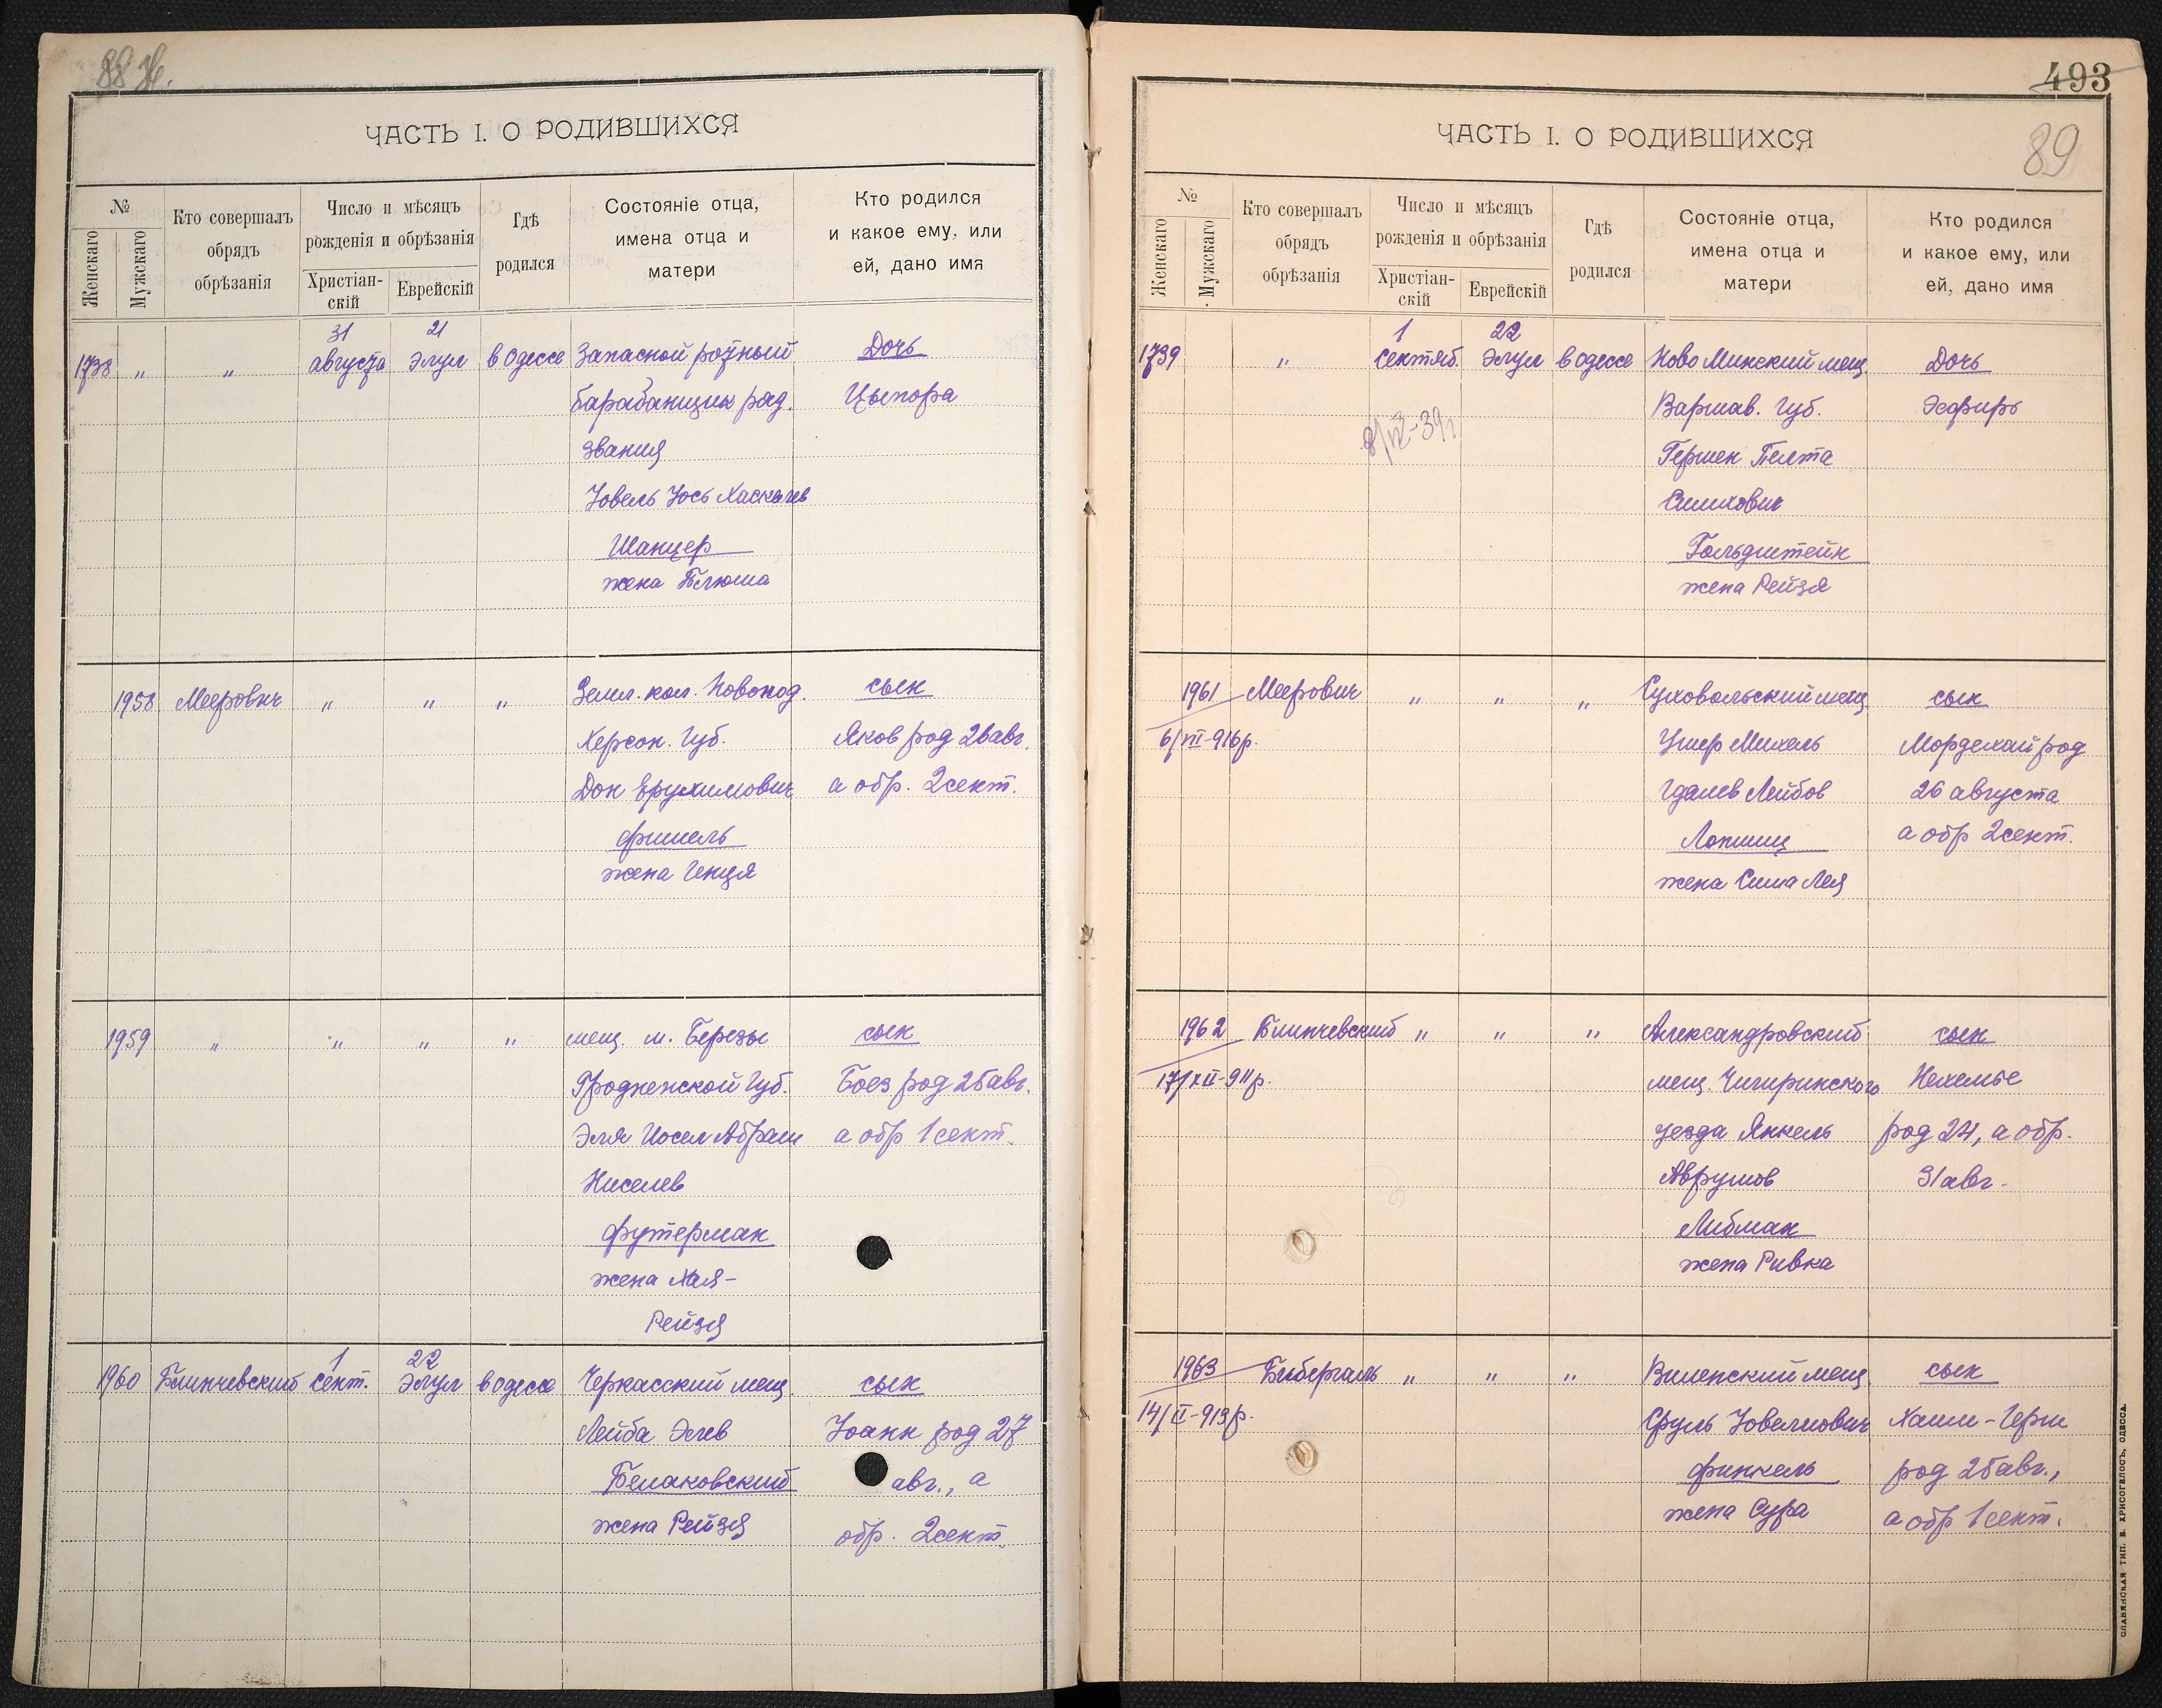 88 ж.
ЧАСТЬ I. О РОДИВШИХСЯ
№
Женскаго
Мужскаго
Кто совершалъ
обрядъ
обрѣзанія
Число и мѣсяцъ
рожденія и обрѣзанія
Христіан-
скій
Еврейскій
Гдѣ
родился
Состояніе отца,
имена отца и
матери
Кто родился
и какое ему, или
ей, дано имя
31 21
1738 „ „ августа Элул в Одессе Запасной ротный Дочь
барабанщик ряд. Цыпора
звания
Іовель Іось Хаскелев
Шанцер
жена Блюма
1958 Меерович „ „ „ Земл. кол. Новопод. сын
Херсон. Губ. Яков род 26 авг.
Дон Ерухимович а обр. 2 сент.
Фишель
жена Генця
1959 „ „ „ „ мещ. м. Березы сын
Гродненской Губ. Боез род 25 авг.
Эля Иосел Абрам а обр 1 сент.
Киселев
Футерман
жена Хая-
Рейзя
1 22
1960 Блинчевский сент. Элул в Одессе Черкасский мещ. сын
Лейба Элев Іоанн род 27
Белаковский авг., а
жена Рейзя обр. 2 сент.
493
89
ЧАСТЬ I. О РОДИВШИХСЯ
№
Женскаго
Мужскаго
Кто совершалъ
обрядъ
обрѣзанія
Число и мѣсяцъ
рожденія и обрѣзанія
Христіан-
скій
Еврейскій
Гдѣ
родился
Состояніе отца,
имена отца и
матери
Кто родился
и какое ему, или
ей, дано имя
1 22
1739 „ Сентяб. Элул в Одессе Ново Минский мещ. Дочь
Варшав. Губ. Эсфирь
Гершек Пелта
Симхович
Гольдштейн
жена Рейзя
1961 Меерович „ „ „ Суховольский мещ. сын
6/VII-916р. Ушер Михель Мордехай род
Гдалев Лейбов 26 августа
Лопшиц а обр 2 сент.
жена Сима Лея
1962 Блинчевский „ „ „ Александровский сын
17/XII-911р. мещ. Чигиринского Нехемье
уезда Янкель род 24, а обр.
Аврумов 31 авг.
Либман
жена Ривка
1963 Бибергаль „ „ „ Виленский мещ. сын
14/II-913р. Сруль Іовелиович Хаим-Герш
Финкель род 25 авг.,
жена Сура а обр 1 сент.
СЛАВЯНСКАЯ ТИП. В. ХРИСОГЕЛОСЪ, ОДЕССА.